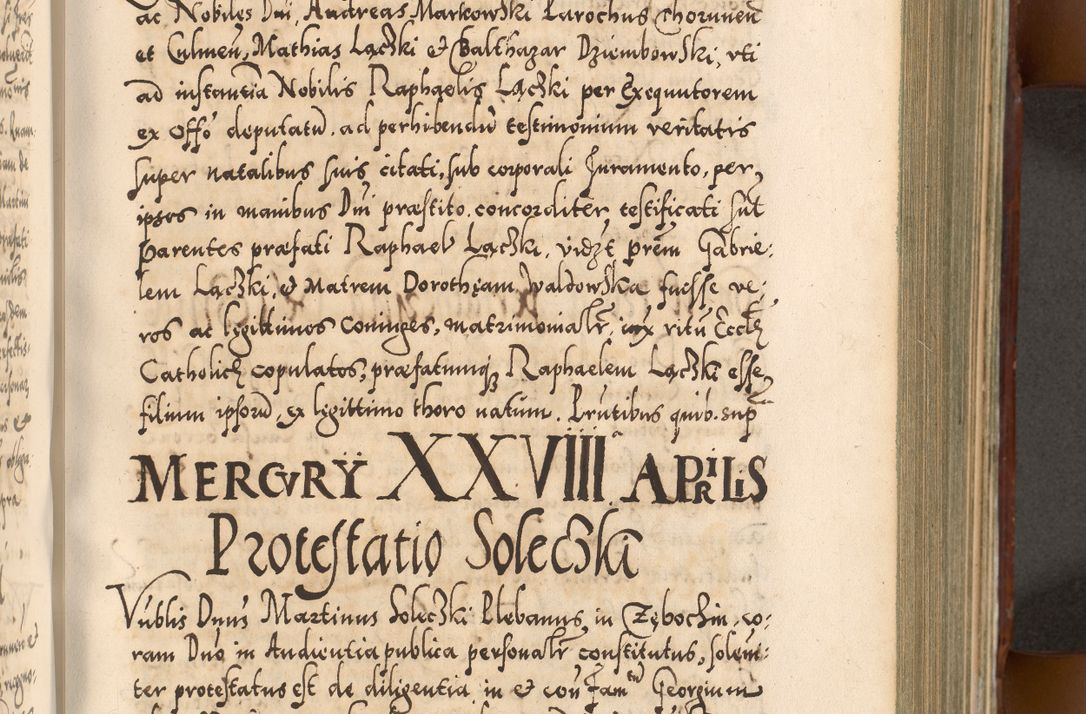 ac Nobiles Dni Andreas Markowski Parochus Thorunen
et Culmen, Mathias Lącżki et Balthazar Dziembowski, vti
ad instantia Nobilis Raphaelis Lącżki per Exequutorem
ex Offo deputatu ad perhibendu testimonium veritatis
super natalibus suis citati, sub corporali Juramento, per
ipsos in manibus Dni præstito concorditer testificati sut
Parentes præfati Raphael Lącżki, vidzt prem Gabrie:
lem Lącżki, et Matrem Dorotheam Waldowska fuisse ve:
ros ac legittimos coniuges, matrimonialr, iux ritu Eccle
Catholicę copulatos, præfatumq Raphaelem Lącżki esse
filium ipsoru, ex legittimo thoro natum. Prutibus quib. sup
MERCVRY XXVIIII APRILIS
Protestatio Solecżki
Vnblis Dnus Martinus Solecżki Plebanus in co:
ram Dno in Audientia publica personalr constitutus, solem:
ter protestatus est de diligentia in et con Fam Georgium